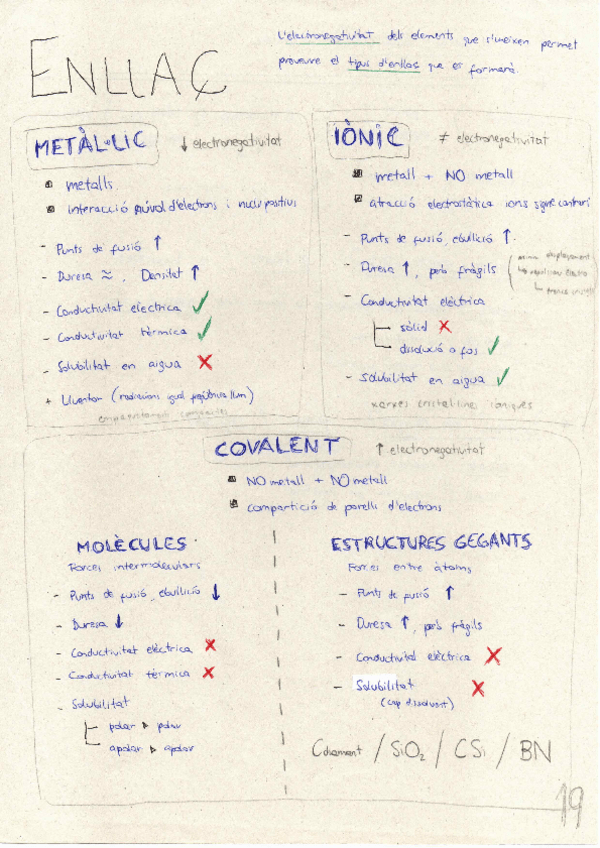 ENLLAÇ
L'electronegativitat dels elements que s'uneixen permet
preveure el tipus d'enllaç que es formarà.
METÀL·LIC ↓ electronegativitat
metalls
interacció núvol d'electrons i nuclis positius
- Punts de fusió ↑
- Duresa ≈, Densitat ↑
- Conductivitat elèctrica ✓
- Conductivitat tèrmica ✓
- Solubilitat en aigua ✗
+ Lluentor (radiacions igual freqüència llum)
empaquetament
IÒNIC ≠ electronegativitat
metall + NO metall
atracció electrostàtica ions signe contrari
- Punts de fusió, ebullició ↑
- Duresa ↑, però fràgils
desplaçament
↳ repulsions
↳
- Conductivitat elèctrica
sòlid ✗
dissolució o fos ✓
- Solubilitat en aigua ✓
xarxes cristal·lines iòniques
COVALENT ↑ electronegativitat
NO metall + NO metall
compartició de parells d'electrons
MOLÈCULES
Forces intermoleculars
- Punts de fusió, ebullició ↓
- Duresa ↓
- Conductivitat elèctrica ✗
- Conductivitat tèrmica ✗
- Solubilitat
polar ▷ polar
apolar ▷ apolar
ESTRUCTURES GEGANTS
Forces entre àtoms
- Punts de fusió ↑
- Duresa ↑, però fràgils
- Conductivitat elèctrica ✗
- Solubilitat ✗
(cap dissolvent)
Cdiamant / SiO₂ / CSi / BN
19